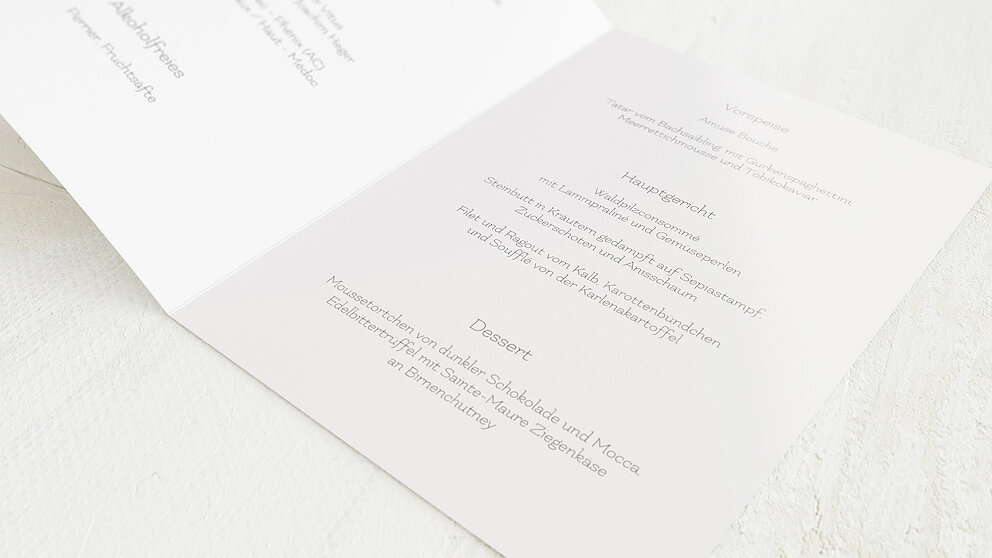 Vitus
Joachim Heger
Phénix (AC)
/ Haut - Médoc
Alkoholfreies
Perrier, Fruchtsäfte
Vorspeise
Amuse Bouche
Tatar vom Bachsaibling mit Gurkenspaghettini
Meerrettichmousse und Tobikokaviar
Hauptgericht
Waldpilsconsommé
mit Lammpraline und Gemüseperlen
Steinbutt in Kräutern gedämpft auf Sepiastampf,
Zuckerschoten und Anisschaum
Filet und Ragout vom Kalb, Karottenbündchen
und Soufflé von der Karlenakartoffel
Dessert
Moussetörtchen von dunkler Schokolade und Mocca,
Edelbittertrüffel mit Sainte-Maure Ziegenkäse
an Birnenchutney